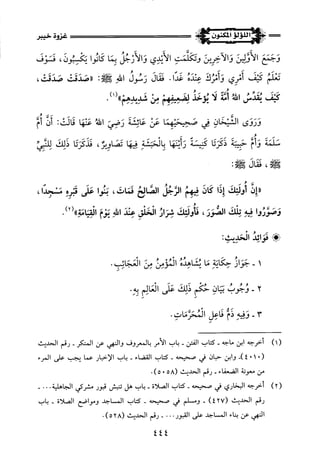 اللؤلؤ المكنون
غزوة خيبر
وَجَمَعَ الأَوَّلِينَ وَالآخِرِينَ وَتَكَلَّمَتِ الأَيْدِي وَالأَرْجُلُ بِمَا كَانُوا يَكْسِبُونَ، فَسَوْفَ
تَعْلَمُ كَيْفَ أَمْرِي وَأَمْرُكَ عِنْدَهُ غَدًا. فَقَالَ رَسُولُ اللهِ ﷺ: «صَدَقَتْ صَدَقَتْ،
كَيْفَ يُقَدِّسُ اللهُ أُمَّةً لَا يُؤْخَذُ لِضَعِيفِهِمْ مِنْ شَدِيدِهِمْ»(١).
وَرَوَى الشَّيْخَانِ فِي صَحِيحَيْهِمَا عَنْ عَائِشَةَ رَضِيَ اللهُ عَنْهَا قَالَتْ: أَنَّ أُمَّ
سَلَمَةَ وَأُمَّ حَبِيبَةَ ذَكَرَتَا كَنِيسَةً رَأَيْنَهَا بِالْحَبَشَةِ فِيهَا تَصَاوِيرُ، فَذَكَرَتَا ذَلِكَ لِلنَّبِيِّ
ﷺ، فَقَالَ ﷺ:
«إِنَّ أُولَئِكَ إِذَا كَانَ فِيهِمُ الرَّجُلُ الصَّالِحُ فَمَاتَ، بَنُوا عَلَى قَبْرِهِ مَسْجِدًا،
وَصَوَّرُوا فِيهِ تِلْكَ الصُّوَرَ، فَأُولَئِكَ شِرَارُ الْخَلْقِ عِنْدَ اللهِ يَوْمَ الْقِيَامَةِ»(٢).
فَوَائِدُ الْحَدِيثِ:
١ - جَوَازُ حِكَايَةِ مَا يُشَاهِدُهُ الْمُؤْمِنُ مِنَ الْعَجَائِبِ.
٢ - وُجُوبُ بَيَانِ حُكْمِ ذَلِكَ عَلَى الْعَالِمِ بِهِ.
٣ - وَفِيهِ ذَمُّ فَاعِلِ الْمُحَرَّمَاتِ.
(١) أخرجه ابن ماجه - كتاب الفتن - باب الأمر بالمعروف والنهي عن المنكر - رقم الحديث
(٤٠١٠). وابن حبان في صحيحه - كتاب القضاء - باب الإخبار عما يجب على المرء
من معونة الضعفاء - رقم الحديث (٥٠٥٨).
(٢) أخرجه البخاري في صحيحه - كتاب الصلاة - باب هل تنبش قبور مشركي الجاهلية... -
رقم الحديث (٤٢٧) - ومسلم في صحيحه - كتاب المساجد ومواضع الصلاة - باب
النهي عن بناء المساجد على القبور... - رقم الحديث (٥٢٨).
٤٤٤